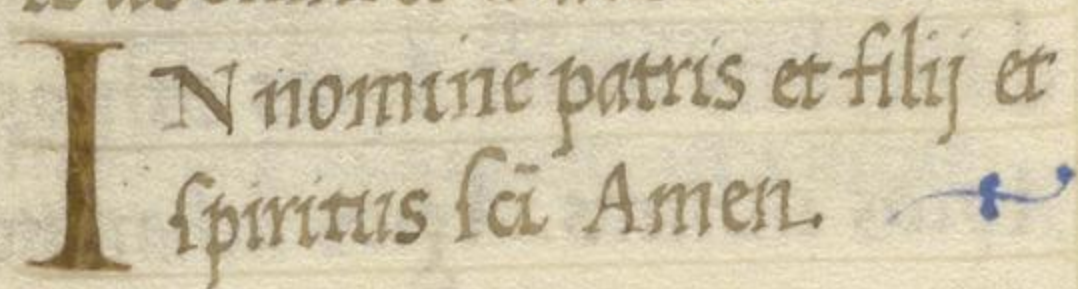 IN nomine patris et filij et
ſpiritus ſcī Amen.